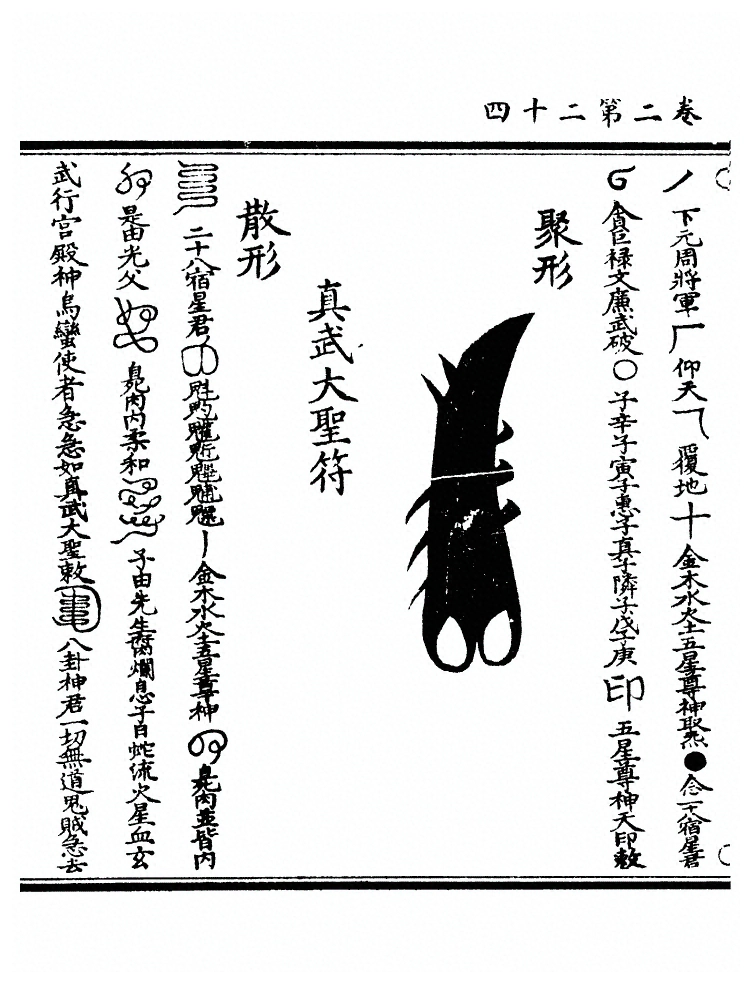 卷二第二十四
下元周將軍 仰天 覆地 金木水火土五星尊神聚炁 念二十八宿星君
貪巨禄文廉武破 子辛子寅子惠子真子隣子戊子庚 印 五星尊神天印敕
聚形
真武大聖符
散形
二十八宿星君 魁䰢䰡魓 金木水火土五星尊神 臰肉並皆内
是由光父 臰肉内柔和 子由先生腐爛息子白蛇流火星血玄
武行宫殿神烏蠻使者急急如真武大聖敕 八卦神君一切無道鬼賊急去